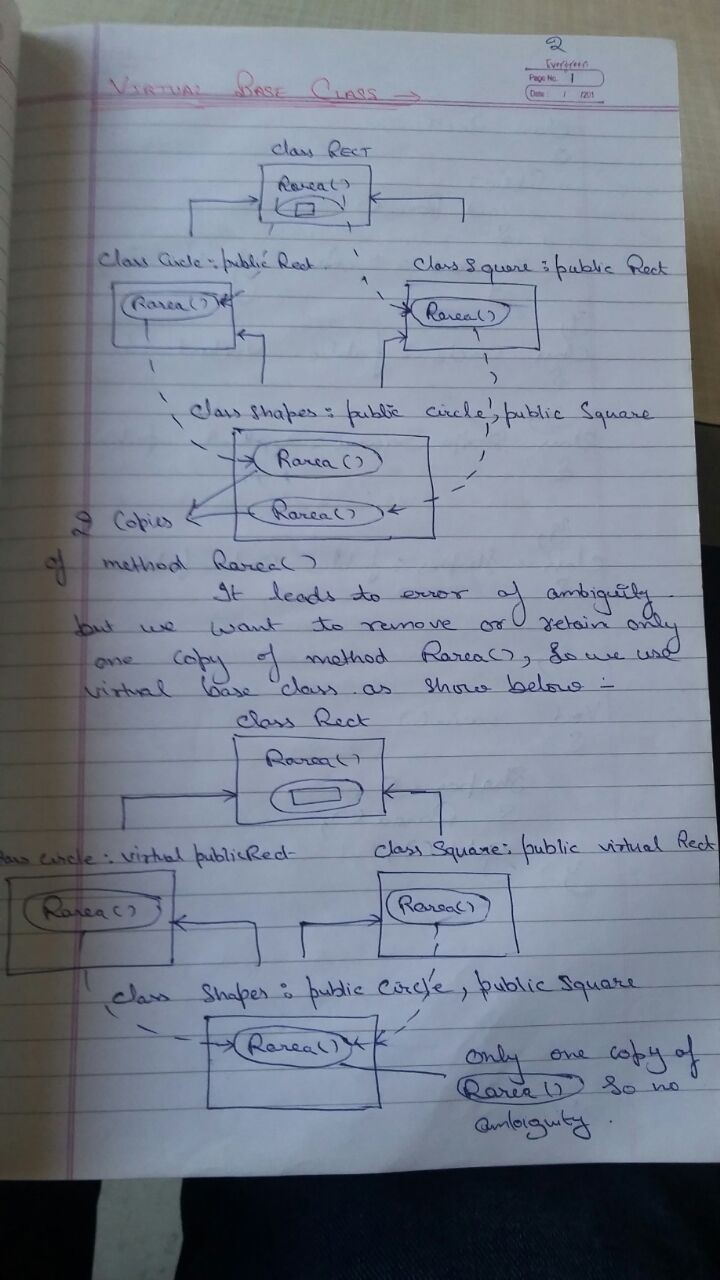 2
Evergreen
Page No. 1
Date: / /201
VIRTUAL BASE CLASS →
Class RECT
Rarea()
Class Circle : public Rect
Class Square : public Rect
Rarea()
Rarea()
Class Shapes : public circle, public Square
Rarea()
Rarea()
2 Copies
of method Rarea()
It leads to error of ambiguity
but we want to remove or retain only
one copy of method Rarea(), So we use
virtual base class as show below :-
Class Rect
Rarea()
class circle : virtual public Rect
Class Square : public virtual Rect
Rarea()
Rarea()
class Shapes : public Circle, public Square
Rarea()
only one copy of
Rarea() So no
ambiguity.